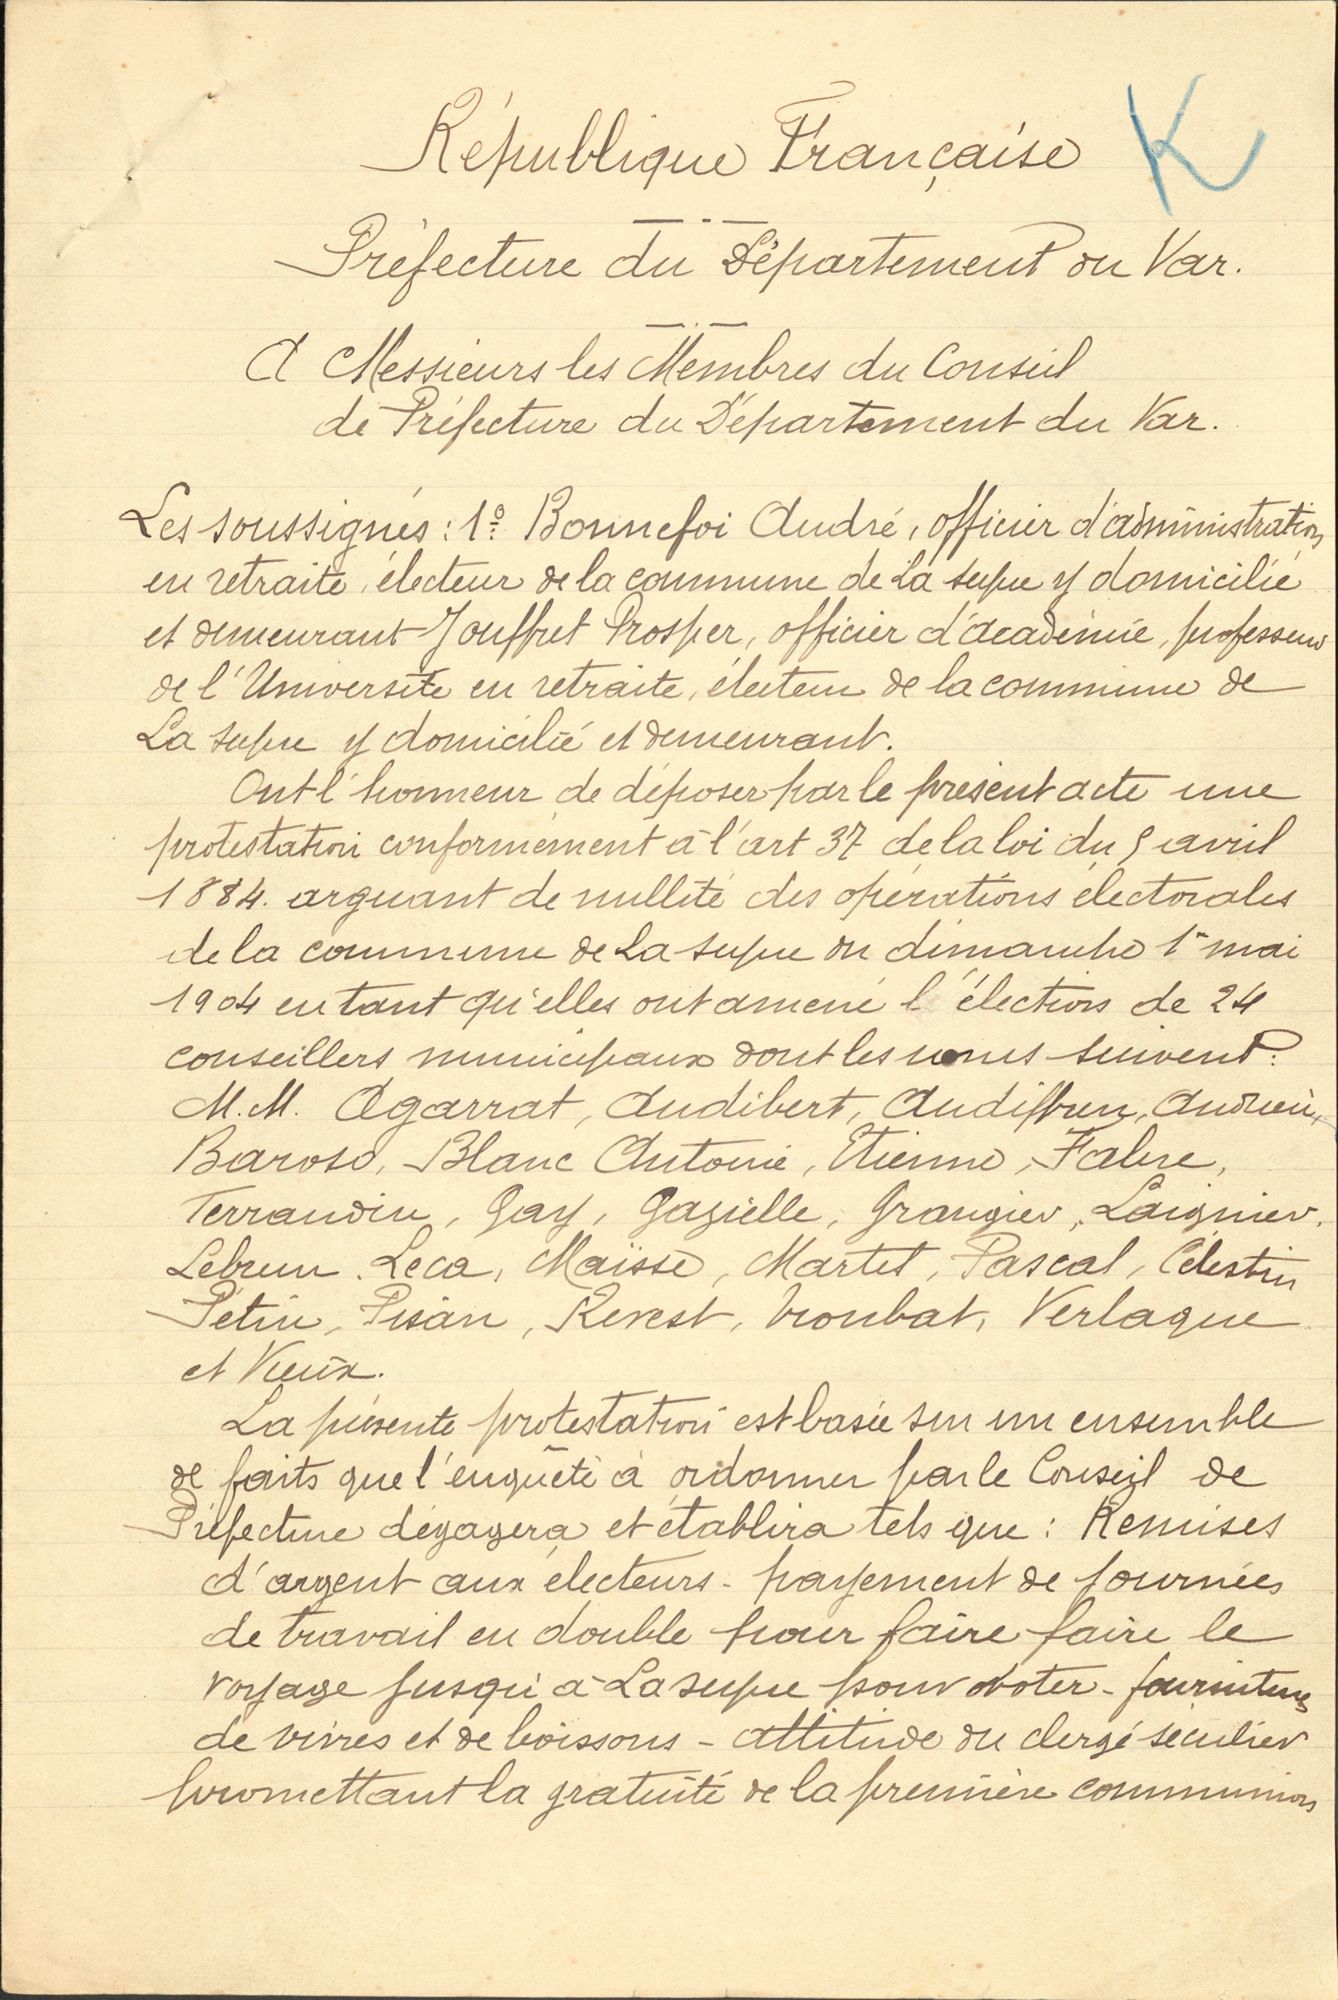 K
République Française
Préfecture du Département du Var.
A Messieurs les Membres du Conseil
de Préfecture du Département du Var.
Les soussignés : 1º Bonnefoi André, officier d'administration
en retraite, électeur de la commune de La Seyne y domicilié
et demeurant Jouffret Prosper, officier d'académie, professeur
de l'Université en retraite, électeur de la commune de
La Seyne y domicilié et demeurant.
Ont l'honneur de déposer par le présent acte une
protestation conformément à l'art 37 de la loi du 5 avril
1884. arguant de nullité des opérations électorales
de la commune de La Seyne du dimanche 1er mai
1904 en tant qu'elles ont amené l'élection de 24
conseillers municipaux dont les noms suivent :
M.M. Agarrat, Audibert, Audiffren, Andrieu,
Baroso, Blanc Antoine, Etienne, Fabre,
Ferrandin, Gay, Gazielle, Grangier, Laignier,
Lebrun, Leca, Maïsse, Martet, Pascal, Célestin
Pétin, Pisan, Revest, Troubat, Verlaque
et Vieux.
La présente protestation est basée sur un ensemble
de faits que l'enquête à ordonner par le Conseil de
Préfecture dégagera et établira tels que : Remises
d'argent aux électeurs - payement de journées
de travail en double pour faire faire le
voyage jusqu'à La Seyne pour voter - fournitures
de vivres et de boissons - attitude du clergé séculier
promettant la gratuité de la première communion